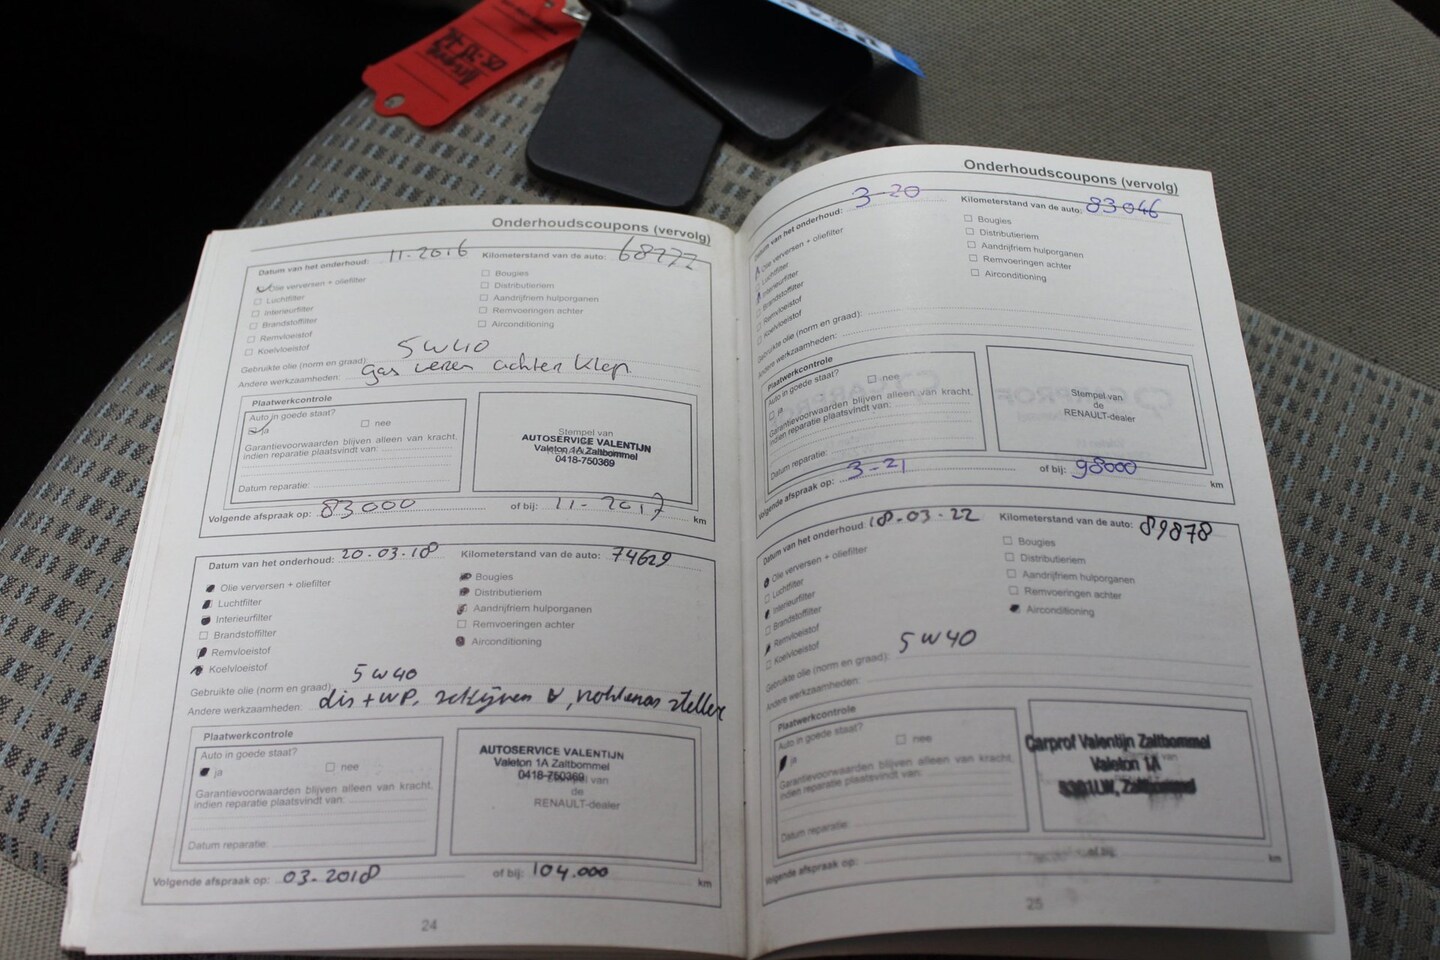 Onderhoudscoupons (vervolg)
Datum van het onderhoud: 11-2016 Kilometerstand van de auto: 68777
Olie verversen + oliefilter
Luchtfilter
Interieurfilter
Brandstoffilter
Remvloeistof
Koelvloeistof
Bougies
Distributieriem
Aandrijfriem hulporganen
Remvoeringen achter
Airconditioning
Gebruikte olie (norm en graad): 5W40
Andere werkzaamheden: gas veren achter klep
Plaatwerkcontrole
Auto in goede staat?
ja nee
Garantievoorwaarden blijven alleen van kracht,
indien reparatie plaatsvindt van:
Datum reparatie:
Stempel van
AUTOSERVICE VALENTIJN
Valeton 1A Zaltbommel
0418-750369
Volgende afspraak op: 83000 of bij: 11-2017 km
Datum van het onderhoud: 20-03-18 Kilometerstand van de auto: 74629
Olie verversen + oliefilter
Luchtfilter
Interieurfilter
Brandstoffilter
Remvloeistof
Koelvloeistof
Bougies
Distributieriem
Aandrijfriem hulporganen
Remvoeringen achter
Airconditioning
Gebruikte olie (norm en graad): 5W40
Andere werkzaamheden: dis + WP,
Plaatwerkcontrole
Auto in goede staat?
ja nee
Garantievoorwaarden blijven alleen van kracht,
indien reparatie plaatsvindt van:
Datum reparatie:
AUTOSERVICE VALENTIJN
Valeton 1A Zaltbommel
0418-750369
van
de
RENAULT-dealer
Volgende afspraak op: 03-2018 of bij: 104.000 km
24
Onderhoudscoupons (vervolg)
Datum van het onderhoud: 3-20 Kilometerstand van de auto: 83046
Olie verversen + oliefilter
Luchtfilter
Interieurfilter
Brandstoffilter
Remvloeistof
Koelvloeistof
Bougies
Distributieriem
Aandrijfriem hulporganen
Remvoeringen achter
Airconditioning
Gebruikte olie (norm en graad):
Andere werkzaamheden:
Plaatwerkcontrole
Auto in goede staat?
ja nee
Garantievoorwaarden blijven alleen van kracht,
indien reparatie plaatsvindt van:
Datum reparatie:
Stempel van
de
RENAULT-dealer
Volgende afspraak op: 3-21 of bij: 98000 km
Datum van het onderhoud: 18-03-22 Kilometerstand van de auto: 89878
Olie verversen + oliefilter
Luchtfilter
Interieurfilter
Brandstoffilter
Remvloeistof
Koelvloeistof
Bougies
Distributieriem
Aandrijfriem hulporganen
Remvoeringen achter
Airconditioning
Gebruikte olie (norm en graad): 5W40
Andere werkzaamheden:
Plaatwerkcontrole
Auto in goede staat?
ja nee
Garantievoorwaarden blijven alleen van kracht,
indien reparatie plaatsvindt van:
Datum reparatie:
Carprof Valentijn Zaltbommel
Valeton 1A
Zaltbommel
Volgende afspraak op: of bij: km
25